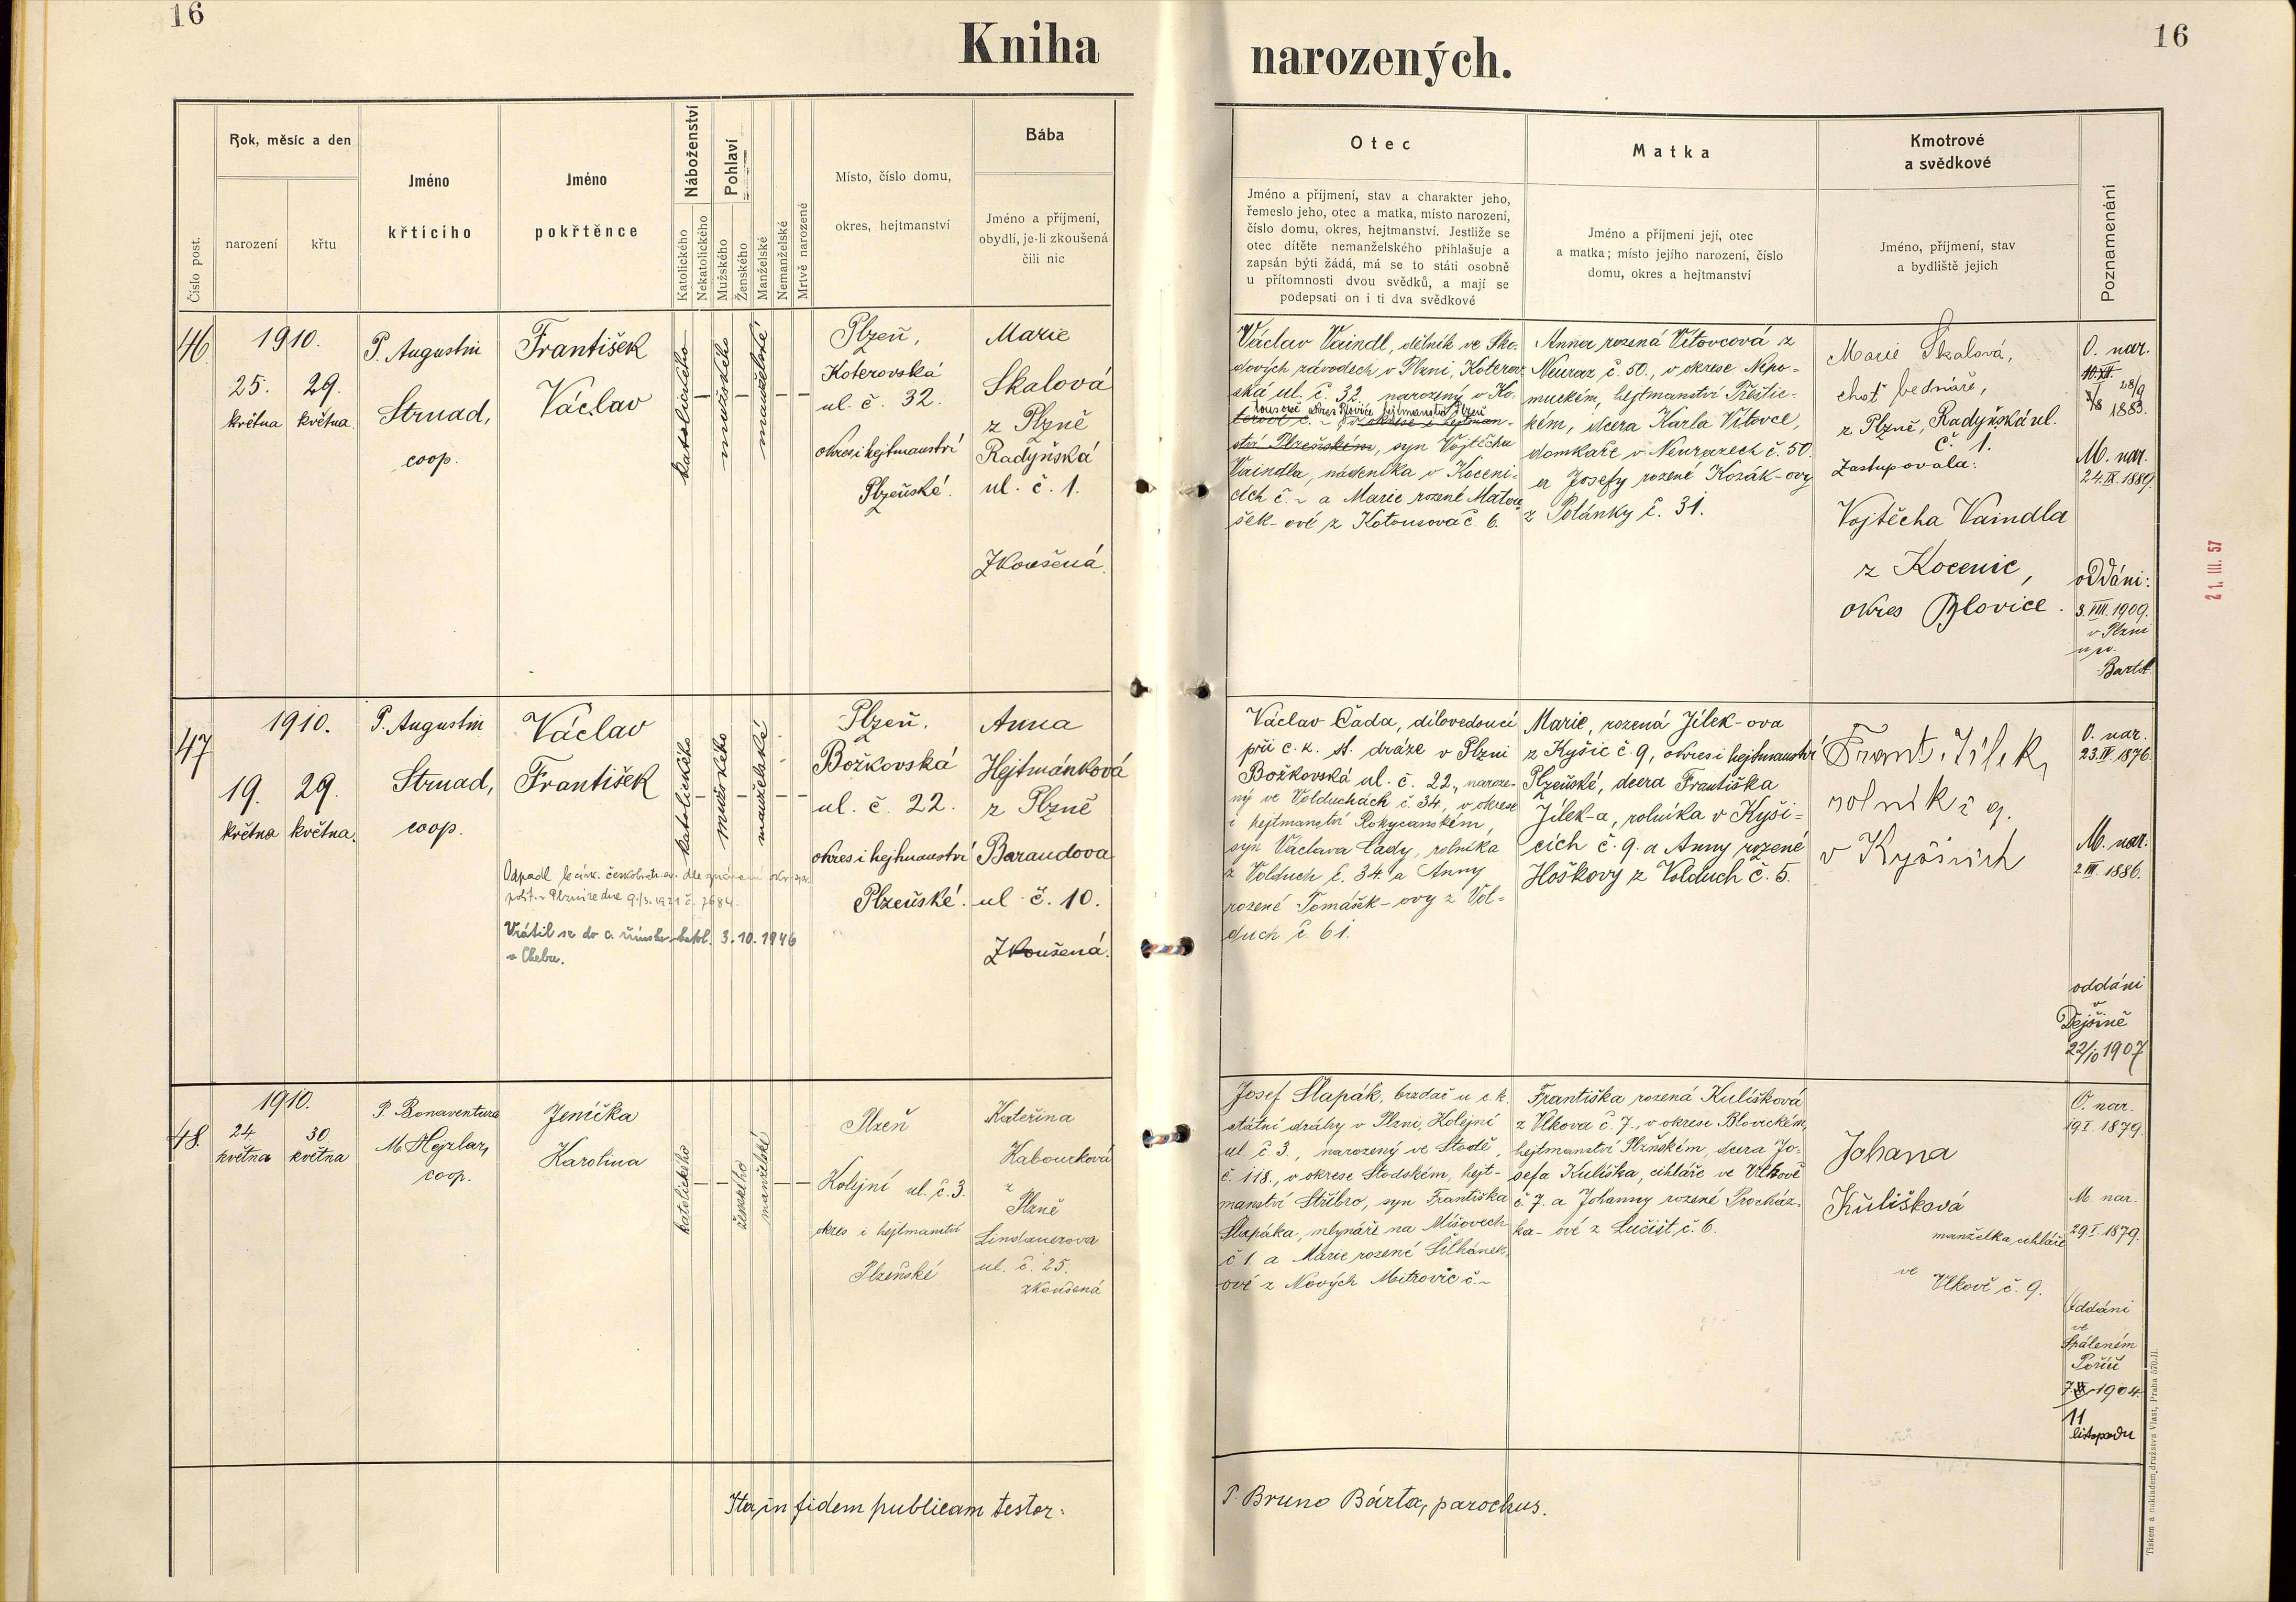 16
Kniha
narozených.
16
Číslo post.
Rok, měsíc a den
narození
křtu
Jméno
křticího
Jméno
pokřtěnce
Náboženství
Katolického
Nekatolického
Pohlaví
Mužského
Ženského
Manželské
Nemanželské
Mrtvě narozené
Místo, číslo domu,
okres, hejtmanství
Bába
Jméno a příjmení,
obydlí, je-li zkoušená
čili nic
Otec
Jméno a příjmení, stav a charakter jeho,
řemeslo jeho, otec a matka, místo narození,
číslo domu, okres, hejtmanství. Jestliže se
otec dítěte nemanželského přihlašuje a
zapsán býti žádá, má se to státi osobně
u přítomnosti dvou svědků, a mají se
podepsati on i ti dva svědkové
Matka
Jméno a příjmení její, otec
a matka; místo jejího narození, číslo
domu, okres a hejtmanství
Kmotrové
a svědkové
Jméno, příjmení, stav
a bydliště jejich
Poznamenání
46
1910.
25. 29.
května května
P. Augustin
Strnad,
coop.
František
Václav
katolického
mužského
manželské
Plzeň,
Koterovská
ul. č. 32.
okres i hejtmanství
Plzeňské.
Marie
Skalová
z Plzně
Radyňská
ul. č. 1.
Zkoušená.
Václav Vaindl, dělník ve Ško-
dových závodech v Plzni, Koterov-
ská ul. č. 32, narozený v Ko-
tousově okres Blovice hejtmanství Plzeň
okrese i hejtman-
ství Plzeňském, syn Vojtěcha
Vaindla, nádeníka v Koceni-
cích č. ~ a Marie rozené Matou
šek-ové z Kotousova č. 6.
Anna rozená Vítovcová z
Neuraz č. 50., v okrese Nepo-
muckém, hejtmanství Přeštic-
kém, dcera Karla Vítovce,
domkaře v Neurazech č. 50.
a Josefy rozené Kozák-ovy
z Polánky č. 31.
Marie Skalová,
choť bednáře,
z Plzně, Radyňská ul.
č. 1.
Zastupovala:
Vojtěcha Vaindla
z Kocenic,
okres Blovice.
O. nar.
28/9
1883.
M. nar.
24. IX. 1889.
oddáni:
3. VIII. 1909.
v Plzni
47
1910.
19. 29.
května května.
P. Augustin
Strnad,
coop.
Václav
František
Odpadl k círk. českobratr. ev. dle oznámení okr. spr.
polit. v Plzni ze dne 9./3. 1921 č. 7684.
Vrátil se do c. římsko-katol. 3. 10. 1946
v Chebu.
katolického
mužského
manželské
Plzeň.
Božkovská
ul. č. 22.
okres i hejtmanství
Plzeňské.
Anna
Hejtmánková
z Plzně
Barandova
ul. č. 10.
Zkoušená.
Václav Čada, dílovedoucí
při c. k. st. dráze v Plzni
Božkovská ul. č. 22., naroze-
ný ve Volduchách č. 34., v okrese
i hejtmanství Rokycanském,
syn Václava Čady, rolníka
z Volduch č. 34. a Anny
rozené Tomášek-ovy z Vol-
duch č. 61.
Marie, rozená Jílek-ova
z Kyšic č 9, okres i hejtmanství
Plzeňské, dcera Františka
Jílek-a, rolníka v Kyši-
cích č. 9. a Anny rozené
Hoškovy z Volduch č. 5.
Frant. Jílek,
rolník č 9.
v Kyšicích
O. nar.
23. IV. 1876.
M. nar.
2. III. 1886.
oddáni
v
Dejšině
22/10 1907
48.
1910.
24. 30
května května
P. Bonaventura
M. Hejzlar,
coop.
Jenička
Karolina
katolického
ženského
manželské
Plzeň
Kolejní ul. č. 3.
okres i hejtmanství
Plzeňské
Kateřina
Kabourková
z
Plzně
Lindauerova
ul. č. 25.
zkoušená
Josef Slapák, brzdař u c. k.
státní dráhy v Plzni, Kolejní
ul. č 3., narozený ve Stodě,
č. 118., v okrese Stodském, hejt-
manství Stříbro, syn Františka
Slapáka, mlynáře na Míšovech
č. 1 a Marie rozené Šilhánek-
ové z Nových Mitrovic č. ~
Františka rozená Kulišková
z Vlkova č. 7., v okrese Blovickém,
hejtmanství Plzňském, dcera Jo-
sefa Kuliška, cihláře ve Vlkově
č. 7. a Johanny rozené Procház-
ka-ové z Lučišt č. 6.
Johana
Kulišková
manželka cihláře
ve
Vlkově č. 9.
O. nar.
19. I. 1879.
M. nar.
29. I. 1879.
Oddáni
ve
Spáleném
Poříčí
1904.
11
listopadu
Ita in fidem publicam testor:
P. Bruno Bárta, parochus.
21. III. 57
Tiskem a nákladem družstva Vlast, Praha 570-II.